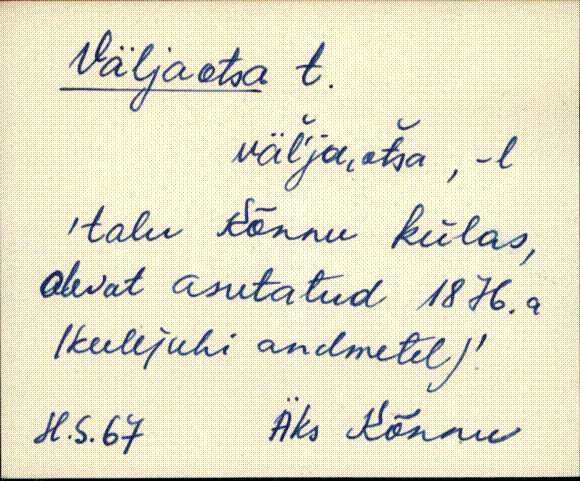 Väljaotsa t.
väĺja‚otša, -l
'talu Kõnnu külas,
olevat asutatud 1876. a
(keelejuhi andmetel)'
H.S.67 Äks Kõnnu